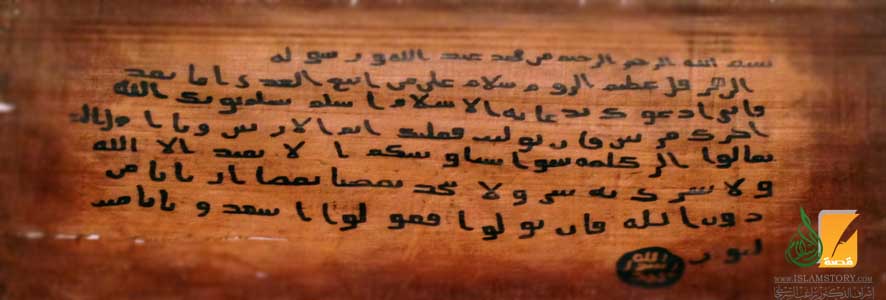 بسم الله الرحمن الرحيم من محمد عبد الله ورسوله
الى هرقل عظيم الروم سلام على من اتبع الهدى اما بعد
فاني ادعوك بدعاية الاسلام اسلم تسلم يوتك الله
اجرك مرتين فان توليت فعليك اثم الاريس ويا
تعالوا الى كلمة سوا بيننا وبينكم الا نعبد الا الله
ولا نشرك به شي ولا يتخذ بعضنا بعضا اربابا من
دون الله فان تولوا فقولوا اشهدوا بانا مس
لمون
الله
رسول
قصة
WWW.ISLAMSTORY.COM